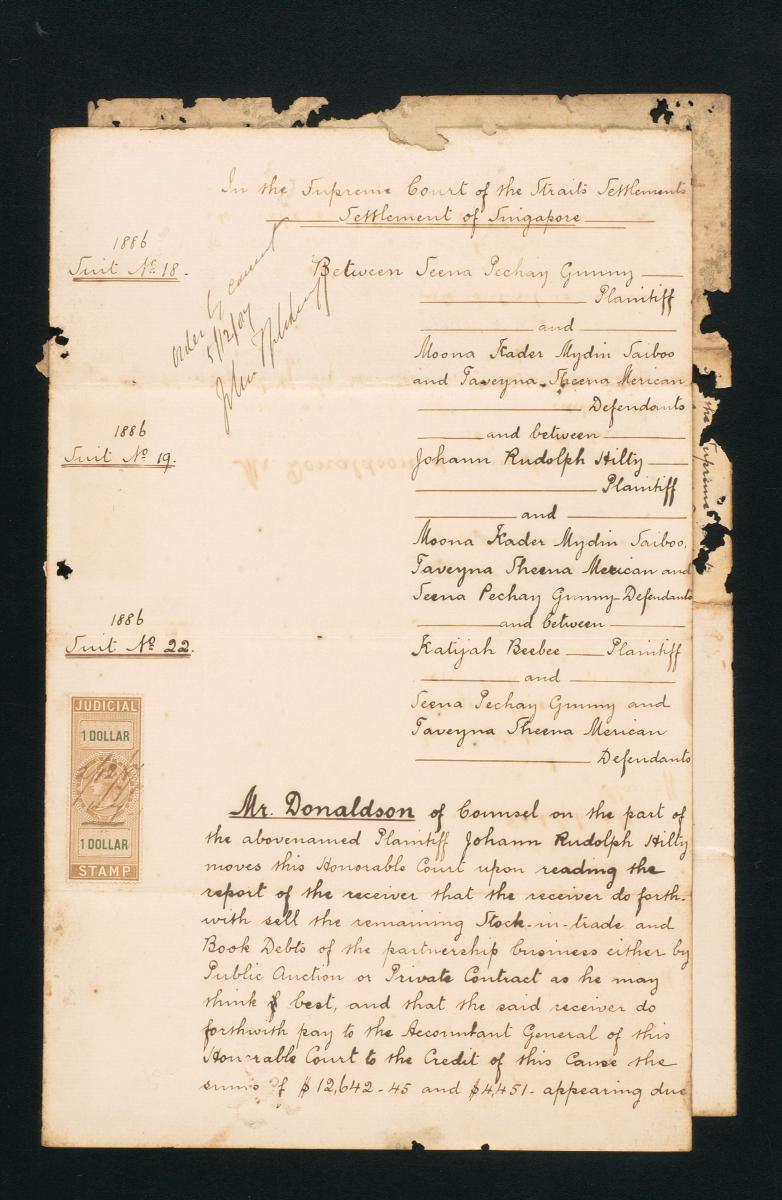 In the Supreme Court of the Straits Settlements
Settlement of Singapore
1886
Suit No 18.
order by consent
5/12/87
John
Between Seena Pechay Gunny
Plaintiff
and
Moona Kader Mydin Saiboo
and Taveyna Sheena Merican
Defendants
1886
Suit No 19.
and between
Johann Rudolph Hilty
Plaintiff
and
Moona Kader Mydin Saiboo,
Taveyna Sheena Merican and
Seena Pechay Gunny Defendants
1886
Suit No 22.
and between
Katijah Beebee Plaintiff
and
Seena Pechay Gunny and
Taveyna Sheena Merican
Defendants
JUDICIAL
1 DOLLAR
1 DOLLAR
STAMP
Mr. Donaldson of Counsel on the part of
the abovenamed Plaintiff Johann Rudolph Hilty
moves this Honorable Court upon reading the
report of the receiver that the receiver do forth-
with sell the remaining Stock-in-trade and
Book Debts of the partnership business either by
Public Auction or Private Contract as he may
think best, and that the said receiver do
forthwith pay to the Accountant General of this
Honorable Court to the Credit of this Cause the
sums of $12,642-45 and $4,451- appearing due
the Supreme